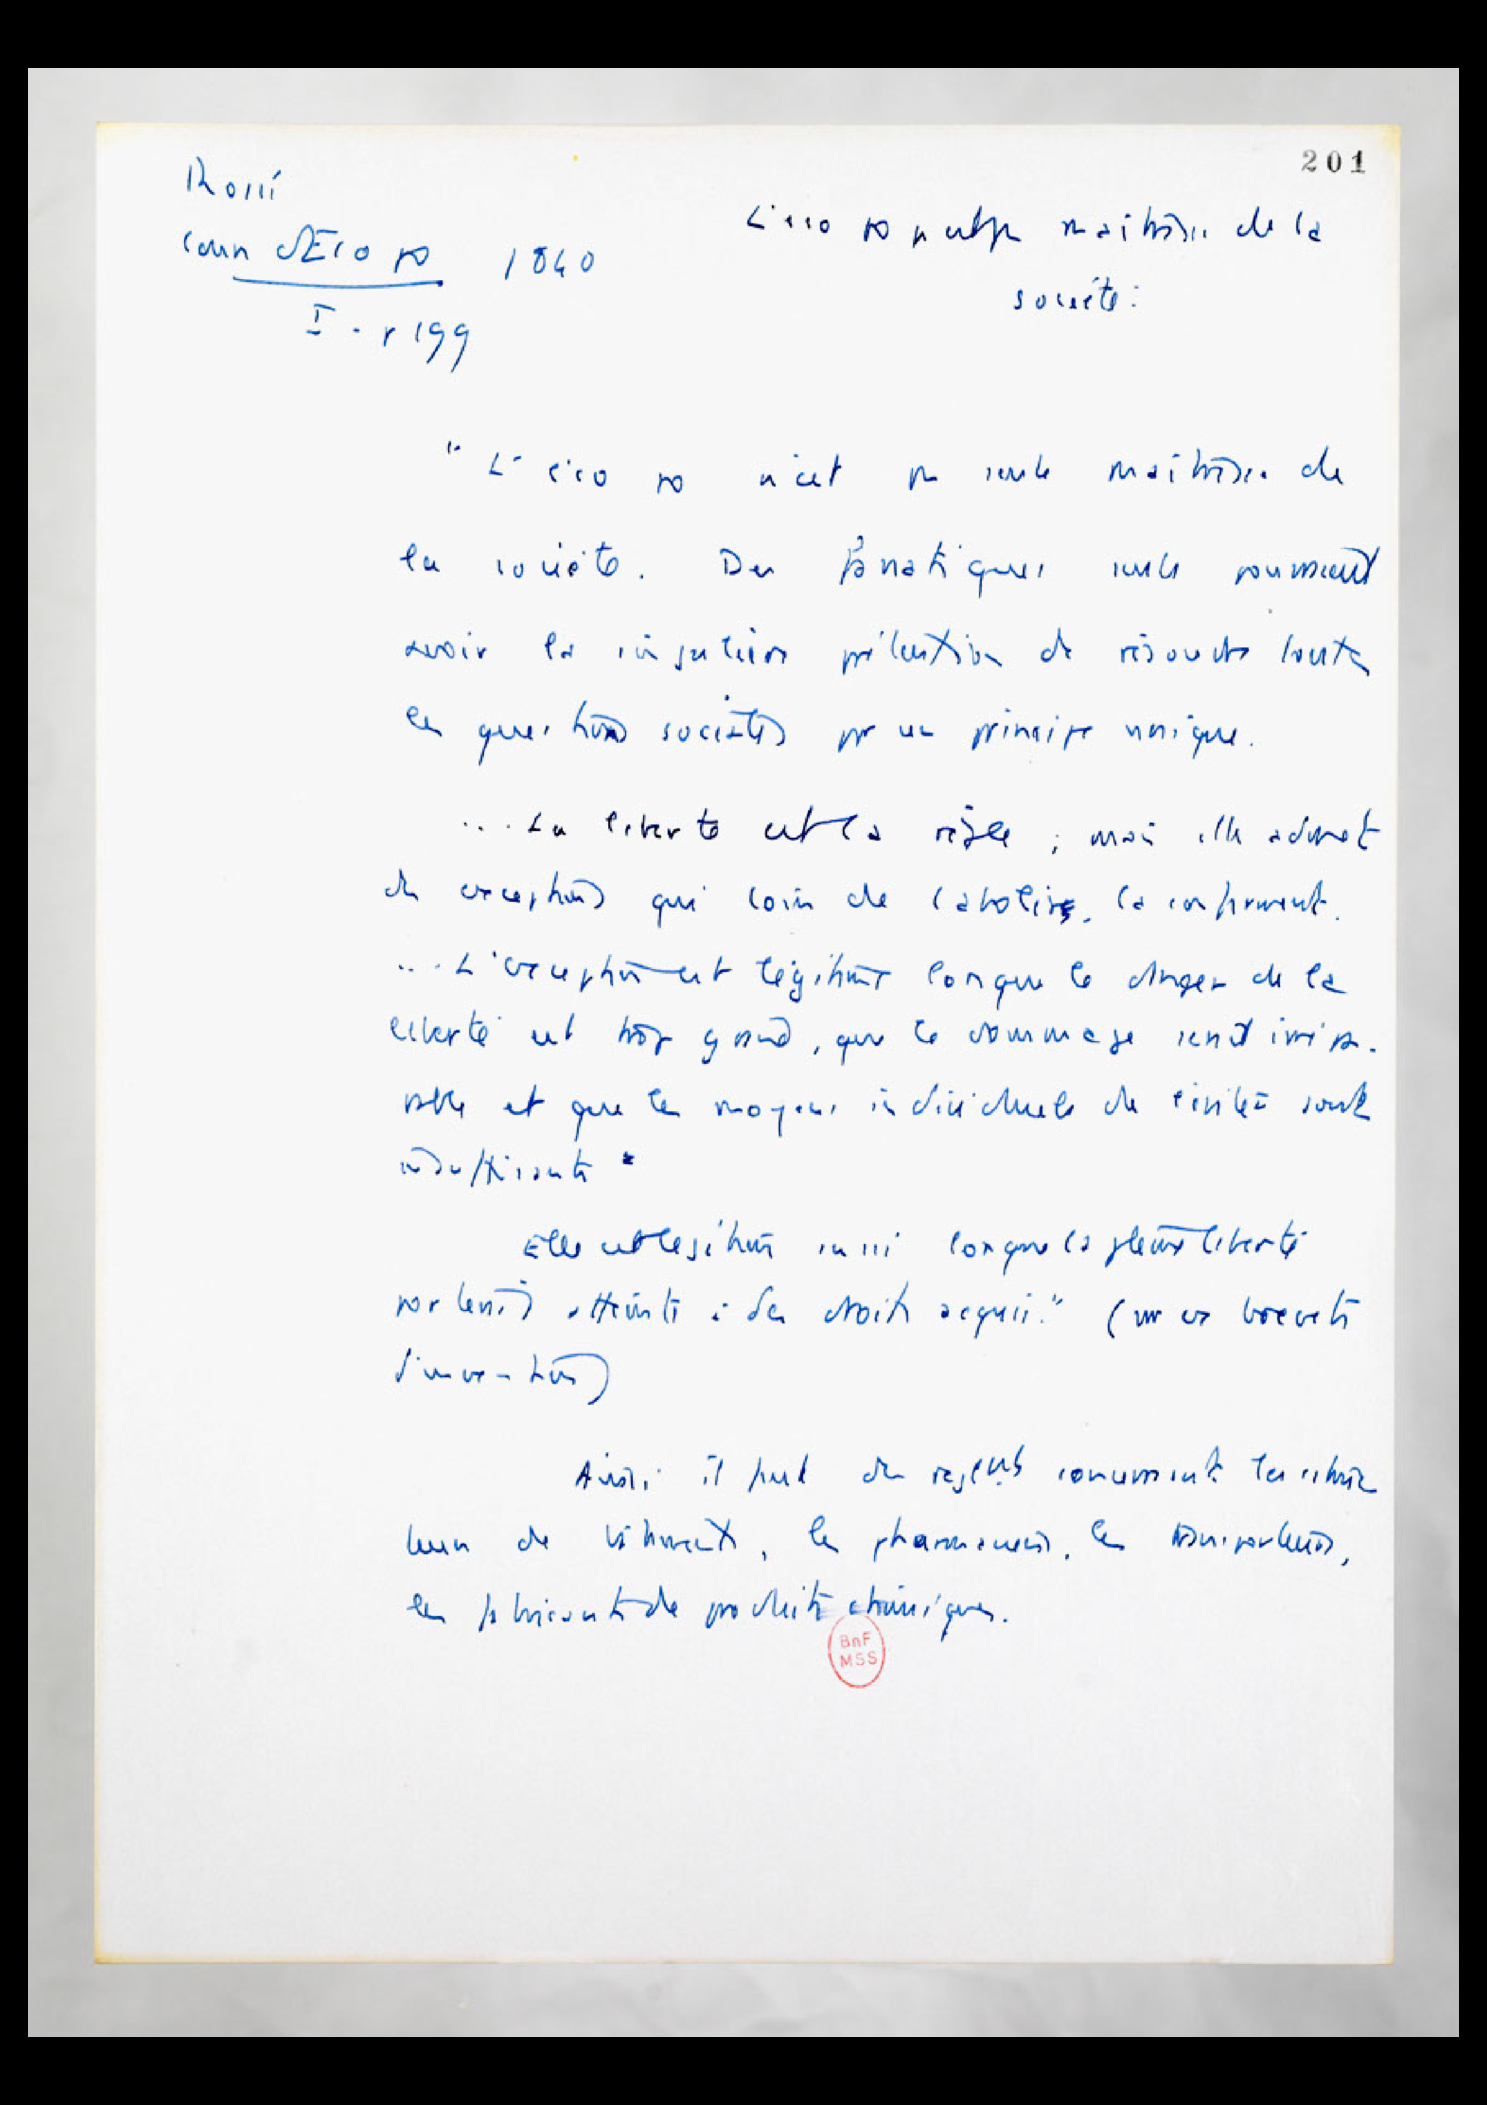 201
Rossi
Cours d'Eco po 1840
I. p 199
L'éco po n'est pas maîtresse de la
société :
"L'éco po n'est pas seule maîtresse de
la société. Des fanatiques seuls pourraient
avoir la singulière prétention de résoudre toutes
les questions sociales par un principe unique.
... La liberté est la règle ; mais elle admet
des exceptions qui loin de l'abolir, la confirment.
... L'exception est légitime lorsque le danger de la
liberté est trop grand, que le dommage serait irrépa-
rable et que les moyens individuels de l'éviter sont
insuffisants"
Elle est légitime aussi lorsque la pleine liberté
porterait atteinte à des droits acquis." (sur les brevets
d'invention)
Ainsi il faut des reglmts concernant les
de bâtiments, les pharmaciens, les transporteurs,
les fabricants de produits chimiques.
BnF
MSS